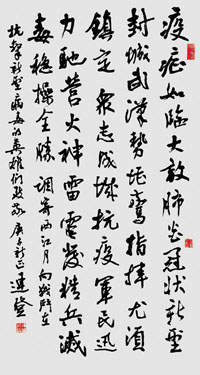 疫症如临大敌肺炎冠状新型
封城武汉势指挥尤须
镇定众志成城抗疫军民迅
力驰营火神雷霆发精兵灭
毒稳操全胜调寄西江月向战斗在
抗击新型病毒的英雄们致敬庚子新正运登